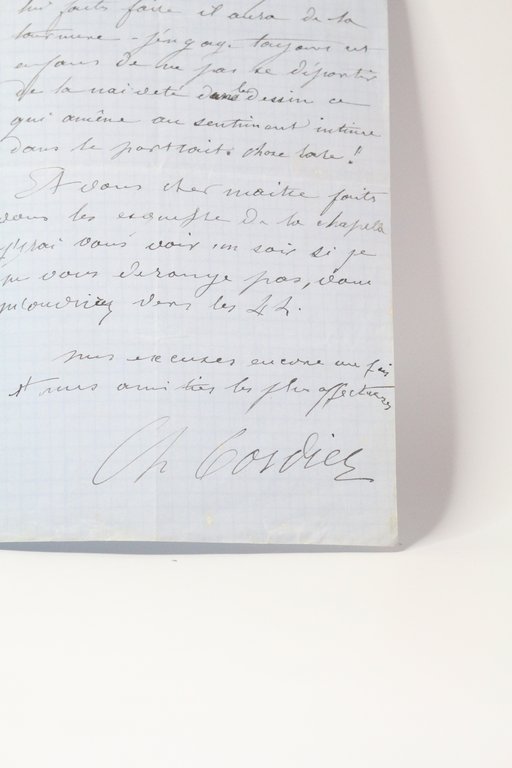 lui faits faire il aura de la
tournure - j'engage toujours cet
enfans de ne pas se départir
de la naiveté dans le dessin ce
qui amène au sentiment intime
dans le portrait. chose rare !
Et vous cher maitre faits
vous les esquisse de la chapelle
j'irai vous voir un soir si je
ne vous derange pas, vous
vers les 4 h.
mes excuses encore une fois
et mes amitiés les plus affectueuses
Ch Cordier